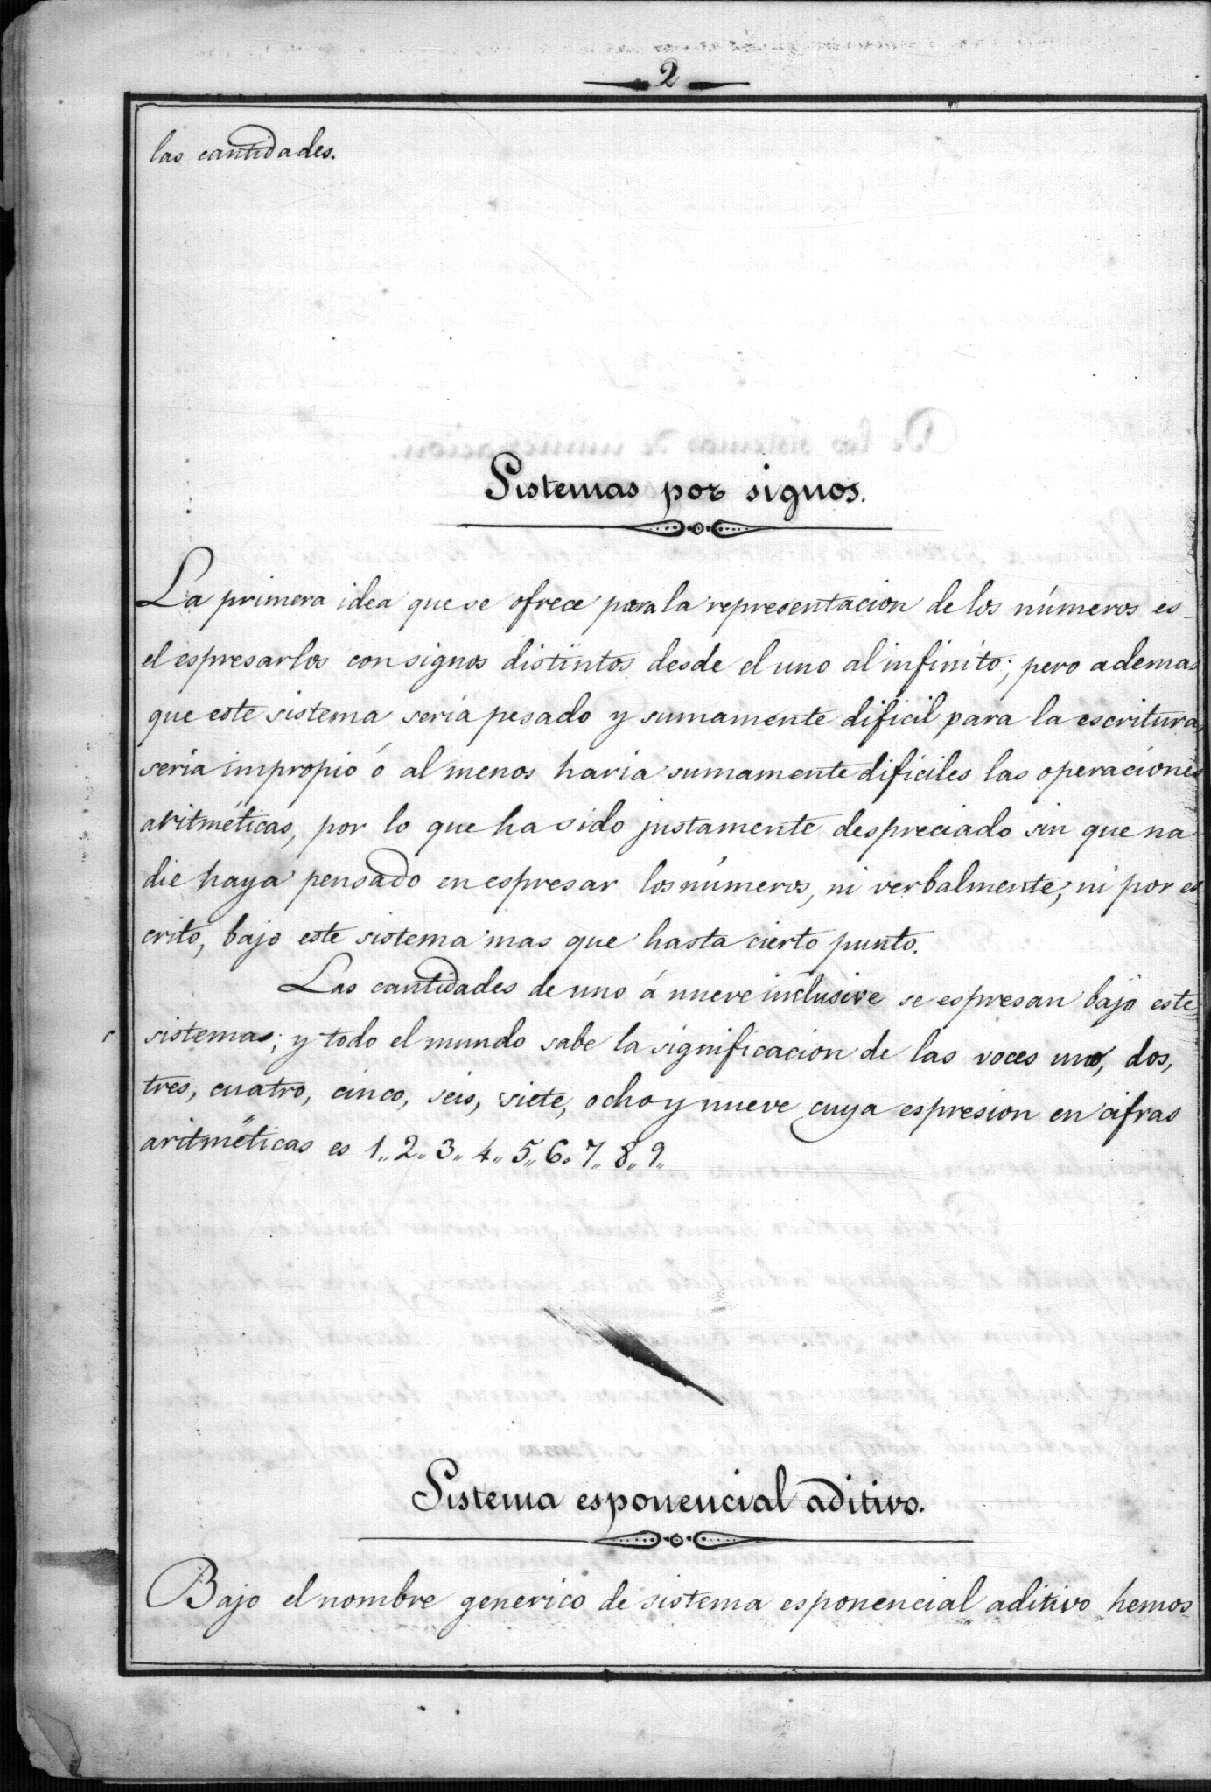 2
las cantidades.
Sistemas por signos.
La primera idea que se ofrece para la representacion de los números es
el espresarlos con signos distintos desde el uno al infinito; pero ademas
que este sistema seria pesado y sumamente dificil para la escritura,
seria impropio ó al menos haria sumamente dificiles las operaciones
aritméticas, por lo que ha sido justamente despreciado sin que na
die haya pensado en espresar los números, ni verbalmente, ni por es
crito, bajo este sistema mas que hasta cierto punto.
Las cantidades de uno á nueve inclusive se espresan bajo este
sistema; y todo el mundo sabe la significacion de las voces uno, dos,
tres, cuatro, cinco, seis, siete, ocho y nueve cuya espresion en cifras
aritméticas es 1,, 2,, 3,, 4,, 5,, 6,, 7,, 8,, 9,,
Sistema esponencial aditivo.
Bajo el nombre generico de sistema esponencial aditivo hemos